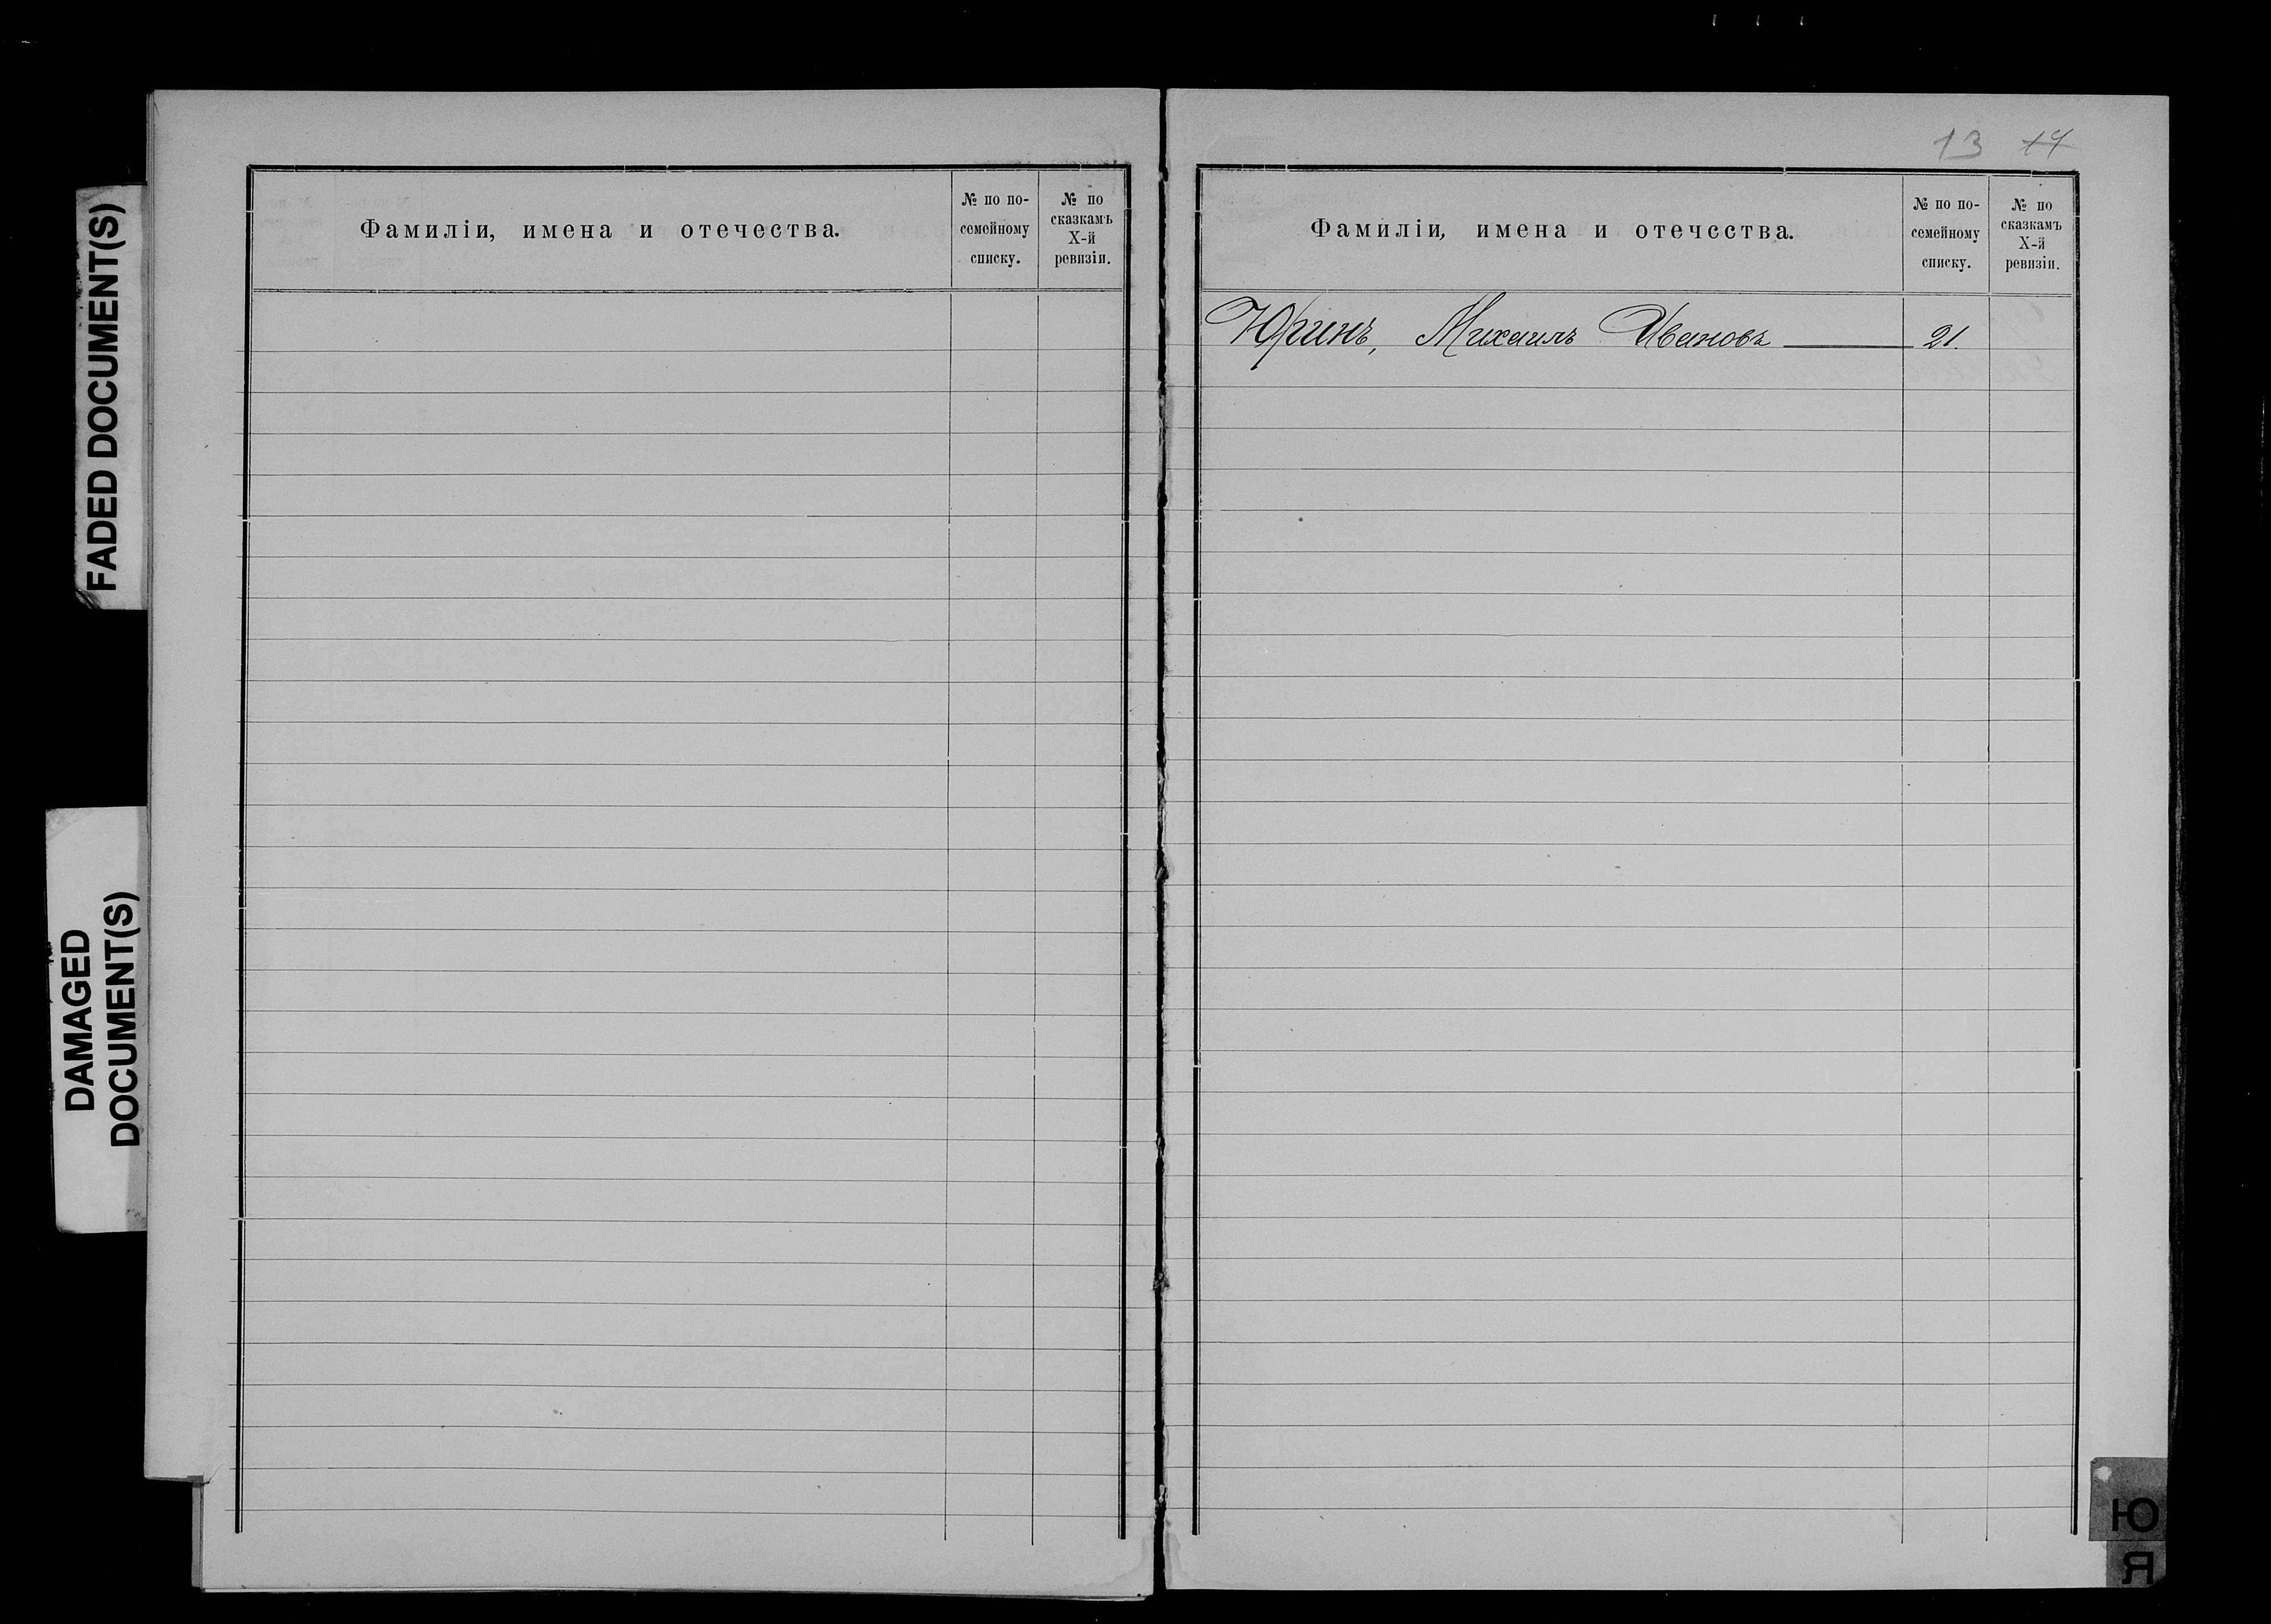 FADED DOCUMENT(S)
DAMAGED
DOCUMENT(S)
Фамиліи, имена и отечества.
№ по по-
семейному
списку.
№ по
сказкамъ
X-й
ревизіи.
13
Фамиліи, имена и отечества.
№ по по-
семейному
списку.
№ по
сказкамъ
X-й
ревизіи.
Юринъ, Михаилъ Ивановъ 21.
Ю
Я